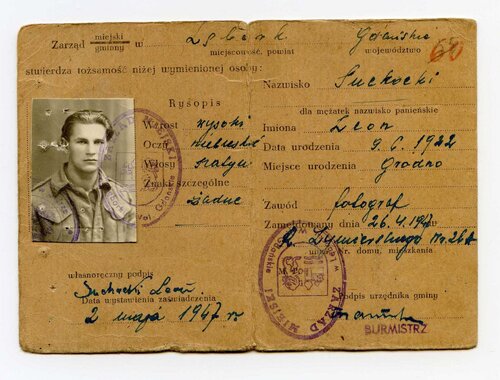 Zarząd miejski
gminny w Lębork Gdańskie
miejscowość, powiat województwo
60
stwierdza tożsamość niżej wymienionej osoby:
Rysopis
Wzrost wysoki
Oczy niebieskie
Włosy
Znaki szczególne
żadne
własnoręczny podpis
Suchocki Leon
Data wystawienia zaświadczenia
2 maja 1947 r
Nazwisko Suchocki
dla mężatek nazwisko panieńskie
Imiona Leon
Data urodzenia 1922
Miejsce urodzenia Grodno
Zawód fotograf
Zameldowany dnia 26.4.1947
nr. domu, mieszkania
ZARZĄD MIEJSKI
Podpis urzędnika gminy
BURMISTRZ